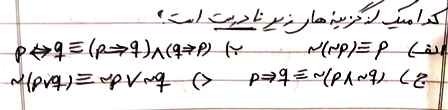 کدامیک از گزینه های زیر نادرست است؟
الف) ~(~p)≡p ب) p⇔q≡(p⇒q)∧(q⇒p)
ج) p⇒q≡~(p∧~q) د) ~(p∨q)≡~p∨~q